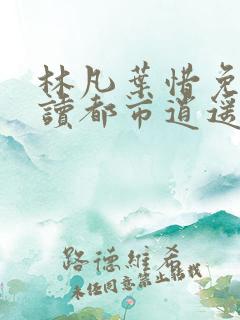 林凡葉惜免
讀都市逍遙
路德維希
未经同意禁止转载